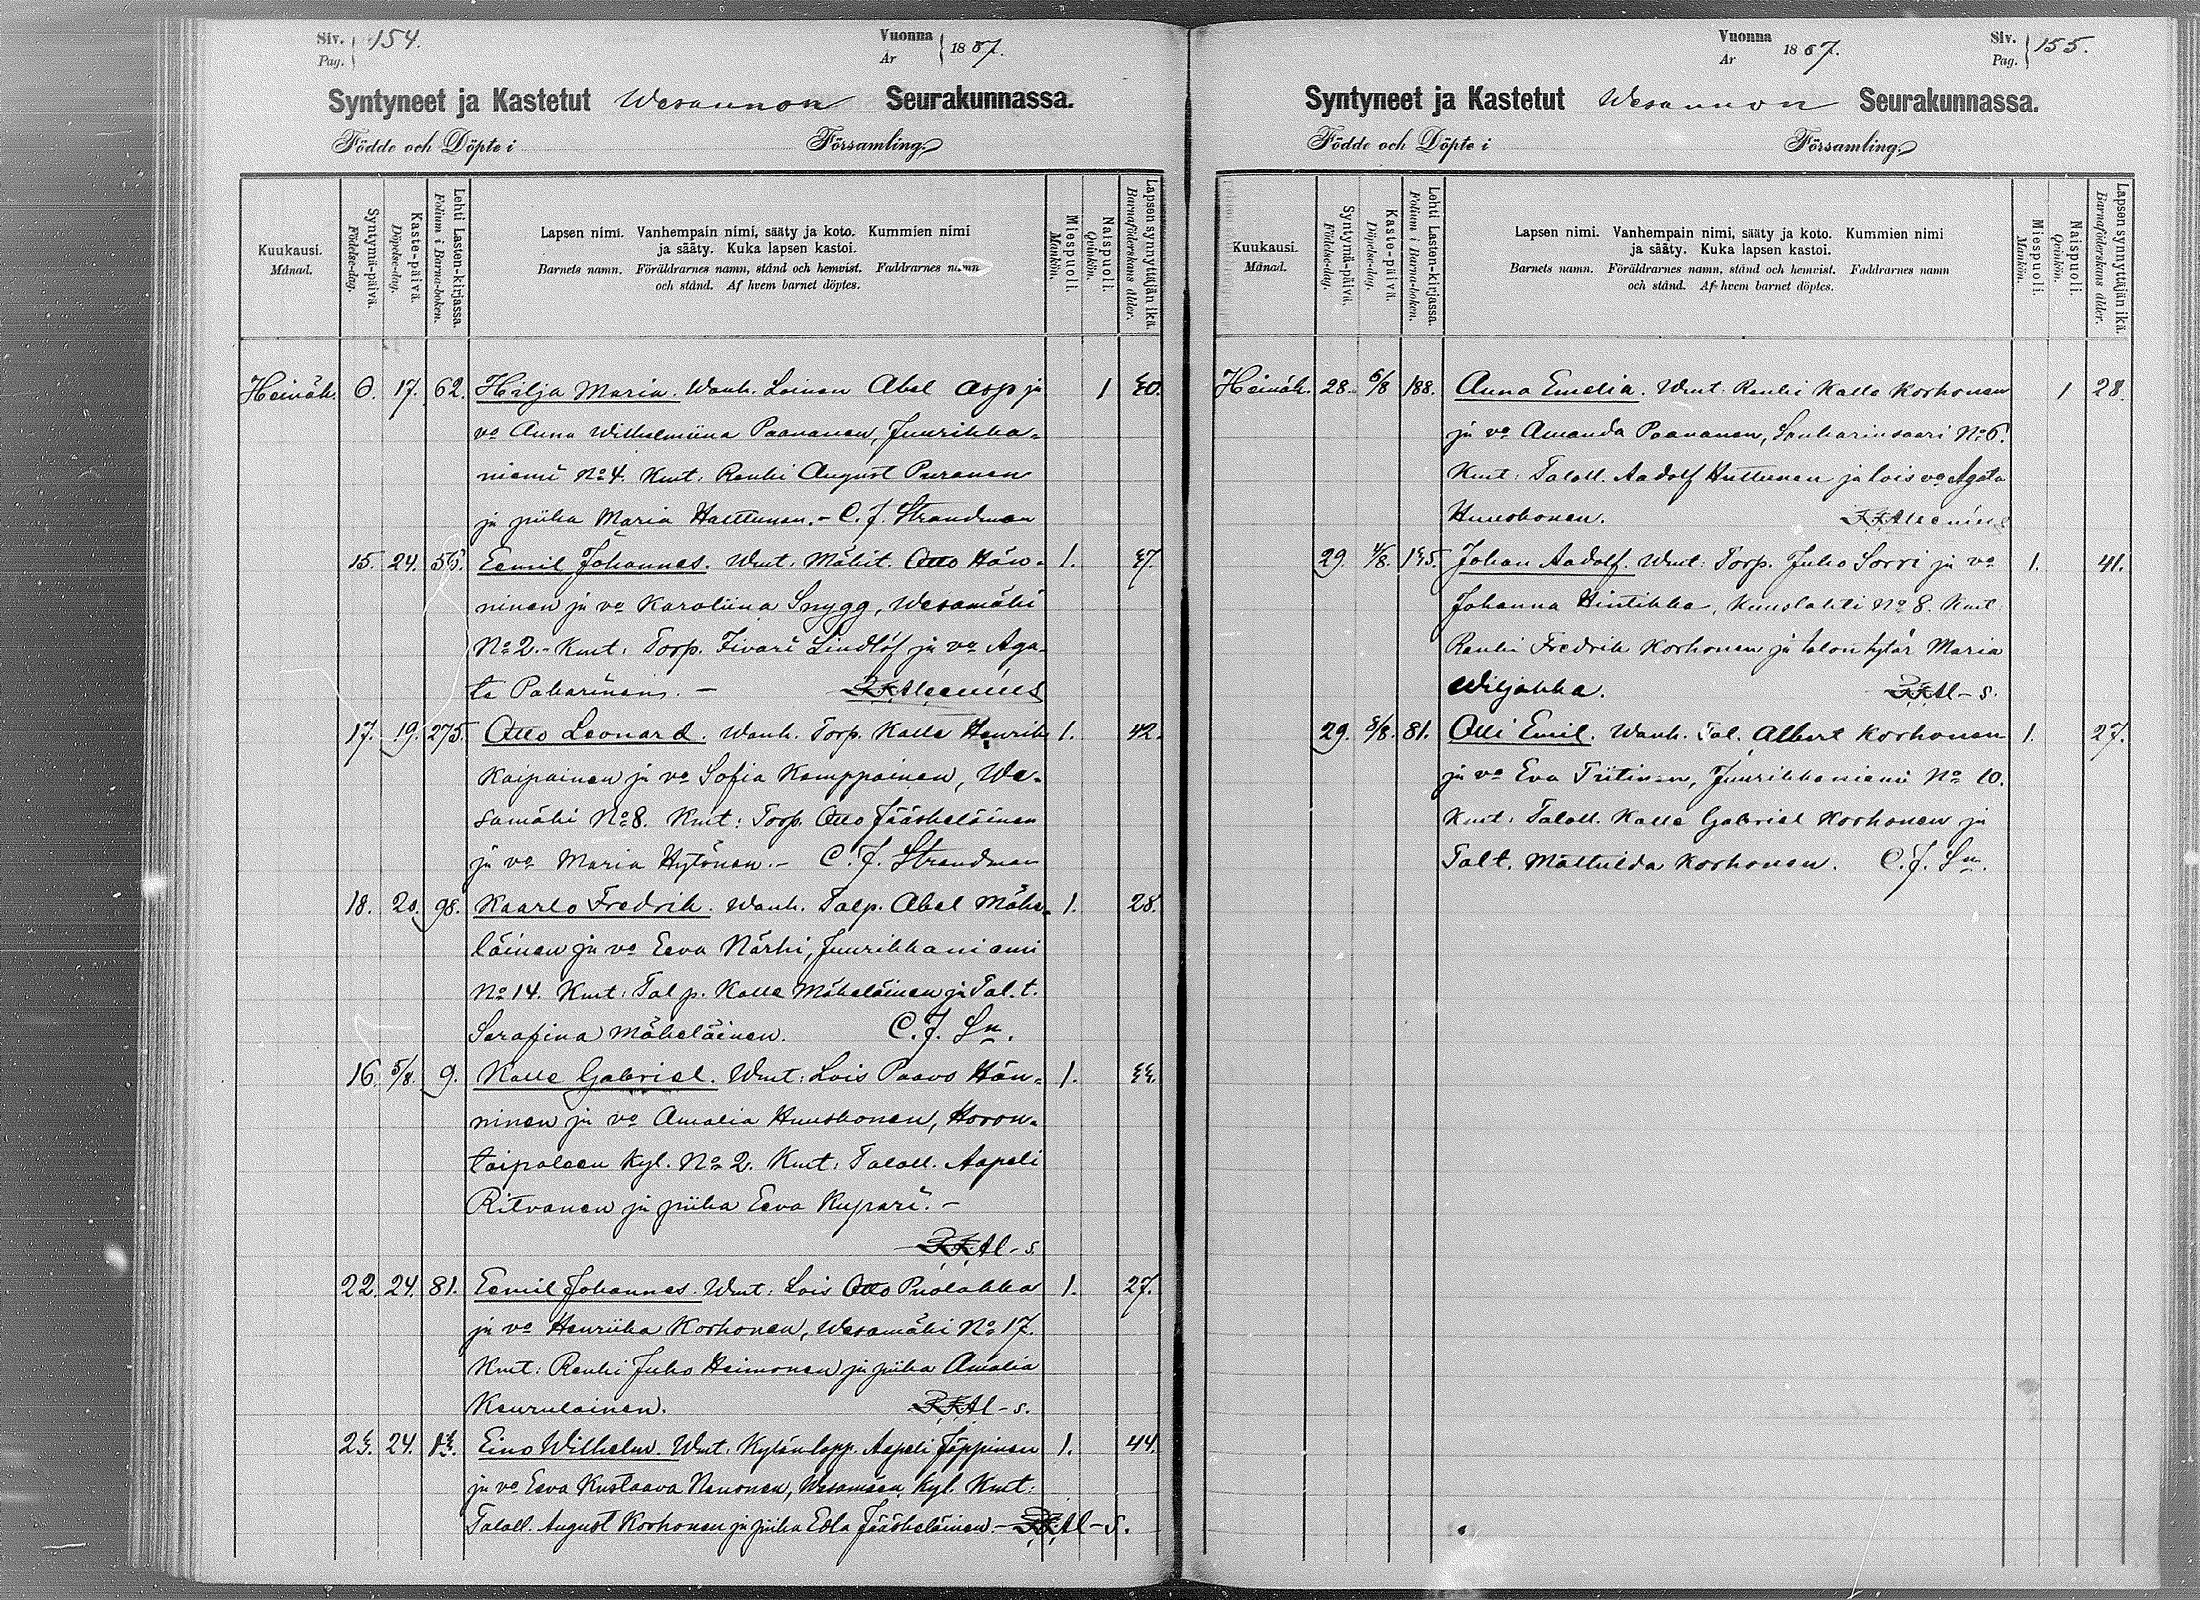 Siv. 154.
Pag.
Vuonna 1887.
Ar
Syntyneet ja Kastetut Wesannon Seurakunnassa.
Födde och Döpte i Församling.
Kuukausi.
Månad.
Syntymä-päivä.
Födelse-dag.
Kaste-päivä.
Döpelse-dag.
Lehti Lasten-kirjassa.
Folium i Barna-boken.
Lapsen nimi. Vanhempain nimi, sääty ja koto. Kummien nimi
ja sääty. Kuka lapsen kastoi.
Barnets namn. Föräldrarnes namn, stånd och hemvist. Faddrarnes namn
och stånd. Af hvem barnet döptes.
Miespuoli.
Mankön.
Naispuoli.
Qvinkön.
Lapsen synnyttäjän ikä.
Barnaföderskans ålder.
Heinäk. 17. 62. Hilja Maria. Wanh. Loinen Abel Asp ja 1 40.
vo Anna Wilhelmiina Paananen, Juurikka-
niemi No 4. Kmt: Renki August Puranen
ja piika Maria Halttunen. - C. J. Strandman
15. 24. 56. Eemil Johannes. Wmt. Mäkit. Otto Hän- 1. 47.
ninen ja vo Karoliina Snygg, Wesamäki
No 2. - Kmt: Torp. Iivari Lindlöf ja vo Aga-
ta Pakarinen. - K. K. Alcenius
17. 19. 275. Otto Leonard. Wanh. Torp. Kalle Henrik 1. 42.
Kaipainen ja vo Sofia Kamppainen, We-
samäki No 8. Kmt: Torp. Otto Jääskeläinen
ja vo Maria Hytönen. - C. J. Strandman
18. 20. 98. Kaarlo Fredrik. Wanh. Talp. Abel Mäke- 1. 28.
läinen ja vo Eeva Närhi, Juurikkaniemi
No 14. Kmt: Talp. Kalle Mäkeläinen ja Tal. t.
Serafina Mäkeläinen. C. J. Sn.
16. 5/8. 9. Kalle Gabriel. Wmt: Lois Paavo Hän- 1. 44.
ninen ja vo Amalia Huuskonen, Horon-
taipaleen kyl. No 2. Kmt: Taloll. Aapeli
Ritvanen ja piika Eeva Kupari. -
K. K. Al-s.
22. 24. 81. Eemil Johannes. Wmt: Lois Otto Puolakka 1. 27.
ja vo Henriika Korhonen, Wesamäki No 17.
Kmt: Renki Juho Heimonen ja piika Amalia
Keurulainen. K. K. Al-s.
24. 24. 14. Eino Wilhelm. Wmt: Kylän lapp. Aapeli Jäppinen 1. 44.
ja vo Eeva Kustaava Nenonen, Wesamäen kyl. Kmt:
Taloll. August Korhonen ja piika Edla Jääskeläinen. - K. K. Al-s.
Vuonna 1887.
Ar
Siv. 155.
Pag.
Syntyneet ja Kastetut Wesannon Seurakunnassa.
Födde och Döpte i Församling.
Kuukausi.
Månad.
Syntymä-päivä.
Födelse-dag.
Kaste-päivä.
Döpelse-dag.
Lehti Lasten-kirjassa.
Folium i Barna-boken.
Lapsen nimi. Vanhempain nimi, sääty ja koto. Kummien nimi
ja sääty. Kuka lapsen kastoi.
Barnets namn. Föräldrarnes namn, stånd och hemvist. Faddrarnes namn
och stånd. Af hvem barnet döptes.
Miespuoli.
Mankön.
Naispuoli.
Qvinkön.
Lapsen synnyttäjän ikä.
Barnaföderskans ålder.
Heinäk. 28. 188. Anna Emelia. Wmt: Renki Kalle Korhonen 1 28.
ja vo Amanda Paananen, Sonkarinsaari No 6.
Kmt: Taloll. Aadolf Huttunen ja lois vo Agata
Huuskonen. K. K. Alcenius
29. 4/8. 145. Johan Aadolf. Wmt: Torp. Juho Sorri ja vo 1. 41.
Johanna Hintikka, Kuuslahti No 8. Kmt.
Renki Fredrik Korhonen ja talon tytär Maria
Wiljakka. K. K. Al-s.
29. 81. Olli Emil. Wanh. Tal. Albert Korhonen 1. 27.
ja vo Eva Tiitinen, Juurikkaniemi No 10.
Kmt: Taloll. Kalle Gabriel Korhonen ja
Tal t. Mathilda Korhonen. C. J. Sn.